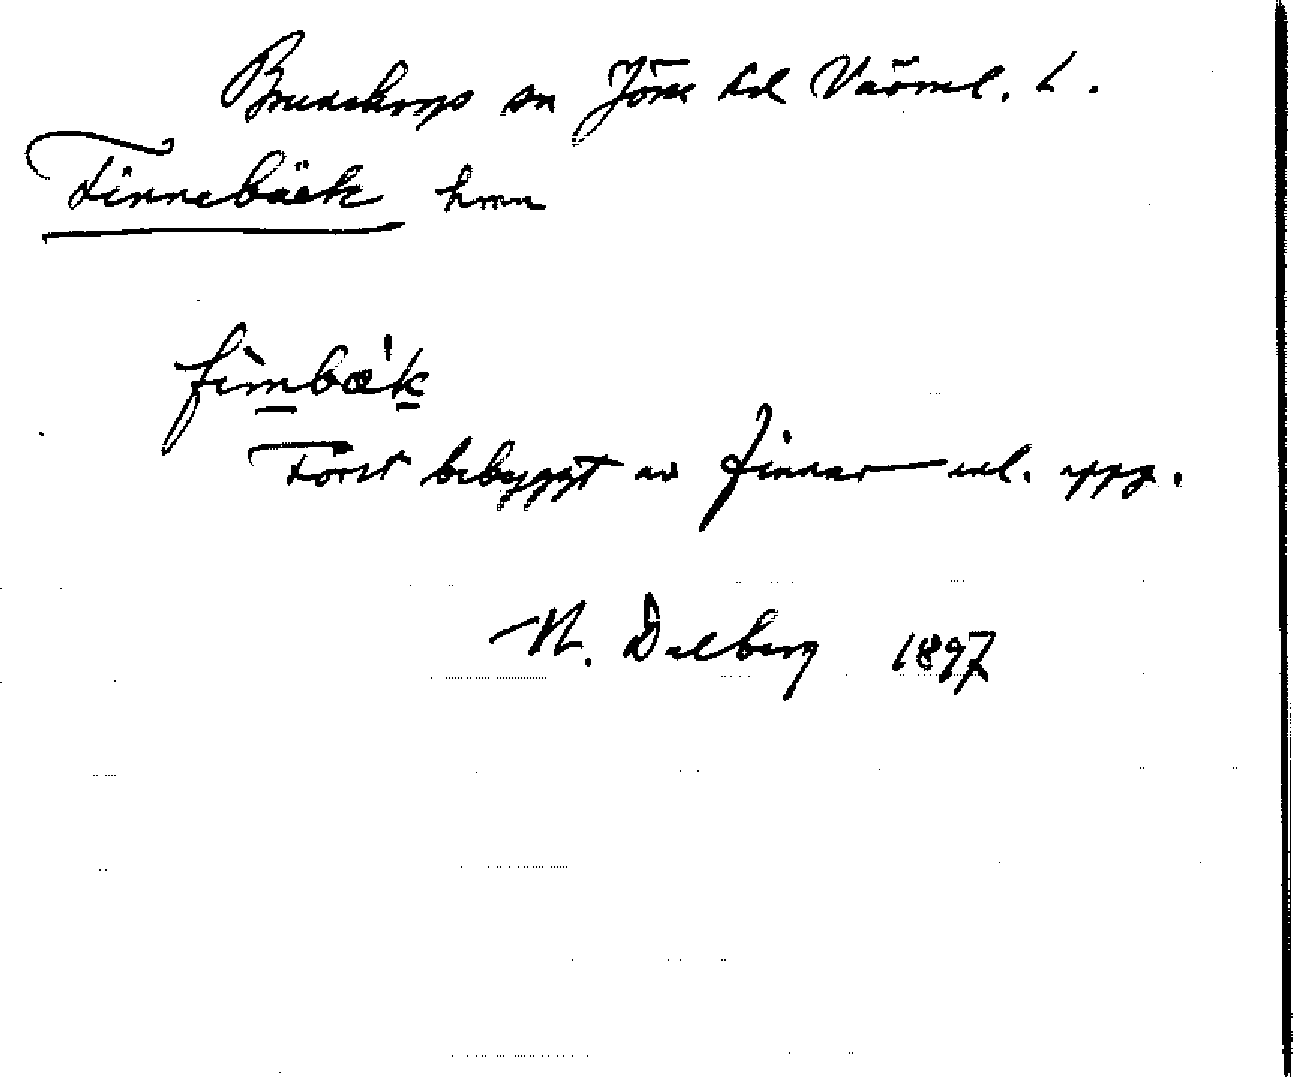 Brunskogs sn Jösse hd Värml. L.
Finnebäck hmn
fìmbæ'k
Först bebyggt av finnar enl. uppg.
N. Dalberg 1897